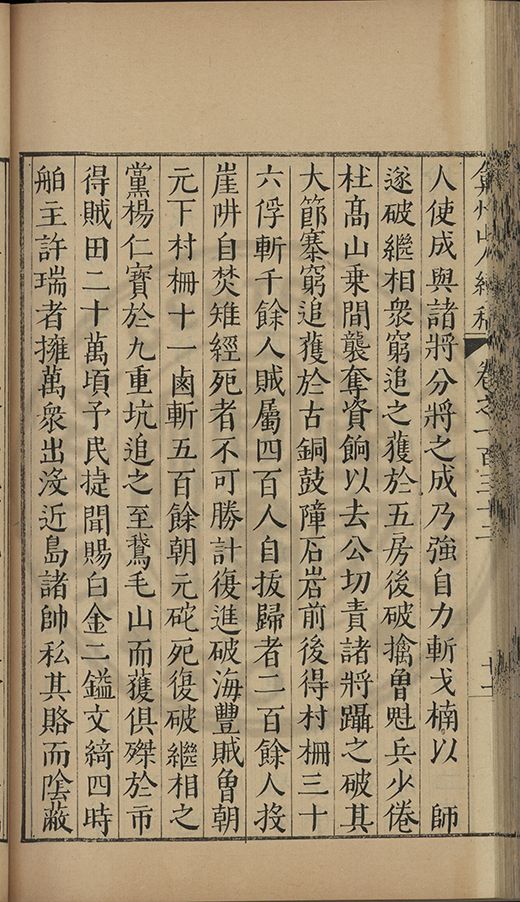 弇州山人續稿 卷之一百三十二 十一
人使成與諸將分將之成乃強自力斬戈楠以 師
遂破繼相眾窮追之獲於五房後破擒曾魁兵少倦
杜髙山乗間襲奪資餉以去公切責諸將躡之破其
大節寨窮追獲於古銅鼓障石岩前後得村柵三十
六俘斬千餘人賊屬四百人自拔歸者二百餘人投
崖阱自焚雉經死者不可勝計復進破海豐賊曾朝
元下村柵十一鹵斬五百餘朝元砣死復破繼相之
黨楊仁寳於九重坑追之至鵞毛山而獲俱殫於市
得賊田二十萬頃予民捷聞賜白金二鎰文綺四時
舶主許瑞者擁萬衆出没近島諸帥私其賂而隂蔽